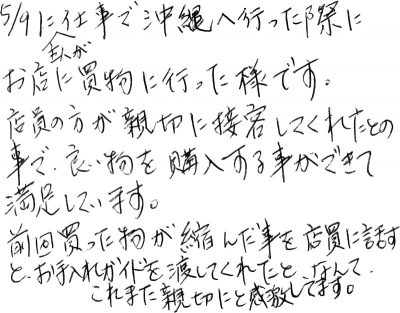 5/9に主人が仕事で沖縄へ行った際に
お店に買物に行った様です。
店員の方が親切に接客してくれたとの
事で、良い物を購入する事ができて
満足しています。
前回買った物が縮んだ事を店員に話す
と、お手入れガイドを渡してくれたと、なんて
これまた親切にと感激してます。